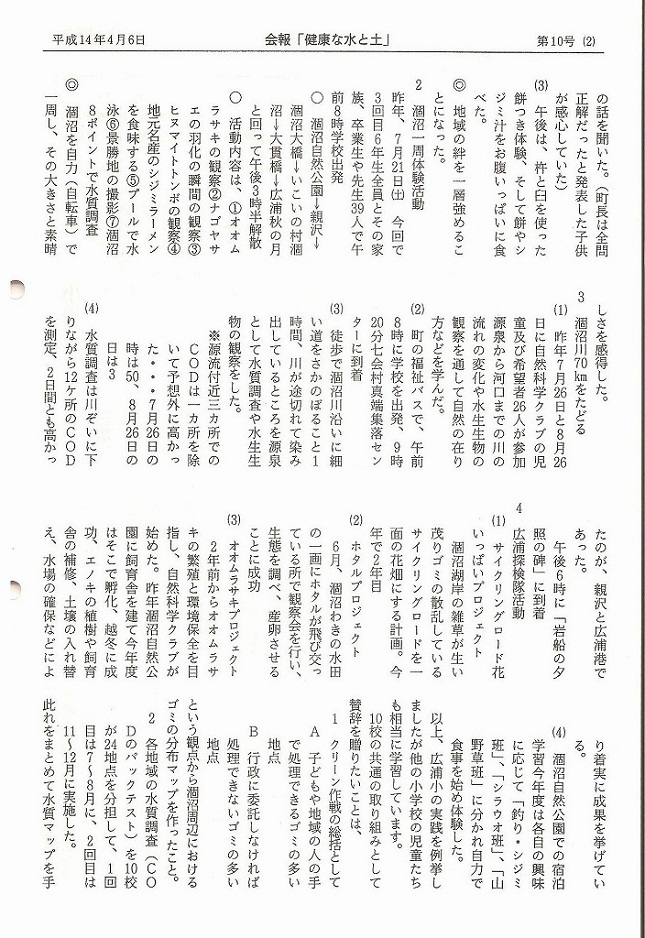 平成14年4月6日
会報「健康な水と土」
第10号 (2)
の話を聞いた。（町長は全問
正解だったと発表した子供
が感心していた）
(3) 午後は、杵と臼を使った
餅つき体験、そして餅やシ
ジミ汁をお腹いっぱいに食
べた。
◎ 地域の絆を一層強めるこ
とになった。
2 涸沼一周体験活動
昨年、7月21日(土) 今回で
3回目6年生全員とその家
族、卒業生や先生39人で午
前8時学校出発
○ 涸沼自然公園→親沢→
涸沼大橋→いこいの村涸
沼→大貫橋→広浦秋の月
と回って午後3時半解散
○ 活動内容は、①オオム
ラサキの観察②ナゴヤサ
エの羽化の瞬間の観察③
ヒヌマイトトンボの観察④
地元名産のシジミラーメン
を食味する⑤プールで水
泳⑥景勝地の撮影⑦涸沼
8ポイントで水質調査
◎ 涸沼を自力（自転車）で
一周し、その大きさと素晴
しさを感得した。
3 涸沼川70㎞をたどる
(1) 昨年7月26日と8月26
日に自然科学クラブの児
童及び希望者26人が参加
源泉から河口までの川の
流れの変化や水生生物の
観察を通して自然の在り
方などを学んだ。
(2) 町の福祉バスで、午前
8時に学校を出発、9時
20分七会村真端集落セン
ターに到着
(3) 徒歩で涸沼川沿いに細
い道をさかのぼること1
時間、川が途切れて染み
出しているところを源泉
として水質調査や水生生
物の観察をした。
※源流付近三カ所での
CODは一カ所を除
いて予想外に高かっ
た・・・7月26日の
時は50、8月26日の
日は3
(4) 水質調査は川ぞいに下
りながら12ケ所のCOD
を測定、2日間とも高かっ
たのが、親沢と広浦港で
あった。
午後6時に「岩船の夕
照の碑」に到着
4 広浦探検隊活動
(1) サイクリングロード花
いっぱいプロジェクト
涸沼湖岸の雑草が生い
茂りゴミの散乱している
サイクリングロードを一
面の花畑にする計画。今
年で2年目
(2) ホタルプロジェクト
6月、涸沼わきの水田
の一画にホタルが飛び交っ
ている所で観察会を行い、
生態を調べ、産卵させる
ことに成功
(3) オオムラサキプロジェクト
2年前からオオムラサ
キの繁殖と環境保全を目
指し、自然科学クラブが
始めた。昨年涸沼自然公
園に飼育舎を建て今年度
はそこで孵化、越冬に成
功、エノキの植樹や飼育
舎の補修、土壌の入れ替
え、水場の確保などによ
り着実に成果を挙げてい
る。
(4) 涸沼自然公園での宿泊
学習今年度は各自の興味
に応じて「釣り・シジミ
班」、「シラウオ班」、「山
野草班」に分かれ自力で
食事を始め体験した。
以上、広浦小の実践を例挙し
ましたが他の小学校の児童たち
も相当に学習しています。
10校の共通の取り組みとして
賛辞を贈りたいことは、
1 クリーン作戦の総括として
A 子どもや地域の人の手
で処理できるゴミの多い
地点
B 行政に委託しなければ
処理できないゴミの多い
地点
という観点から涸沼周辺における
ゴミの分布マップを作ったこと。
2 各地域の水質調査（CO
Dのパックテスト）を10校
が24地点を分担して、1回
目は7～8月に、2回目は
11～12月に実施した。
此れをまとめて水質マップを手